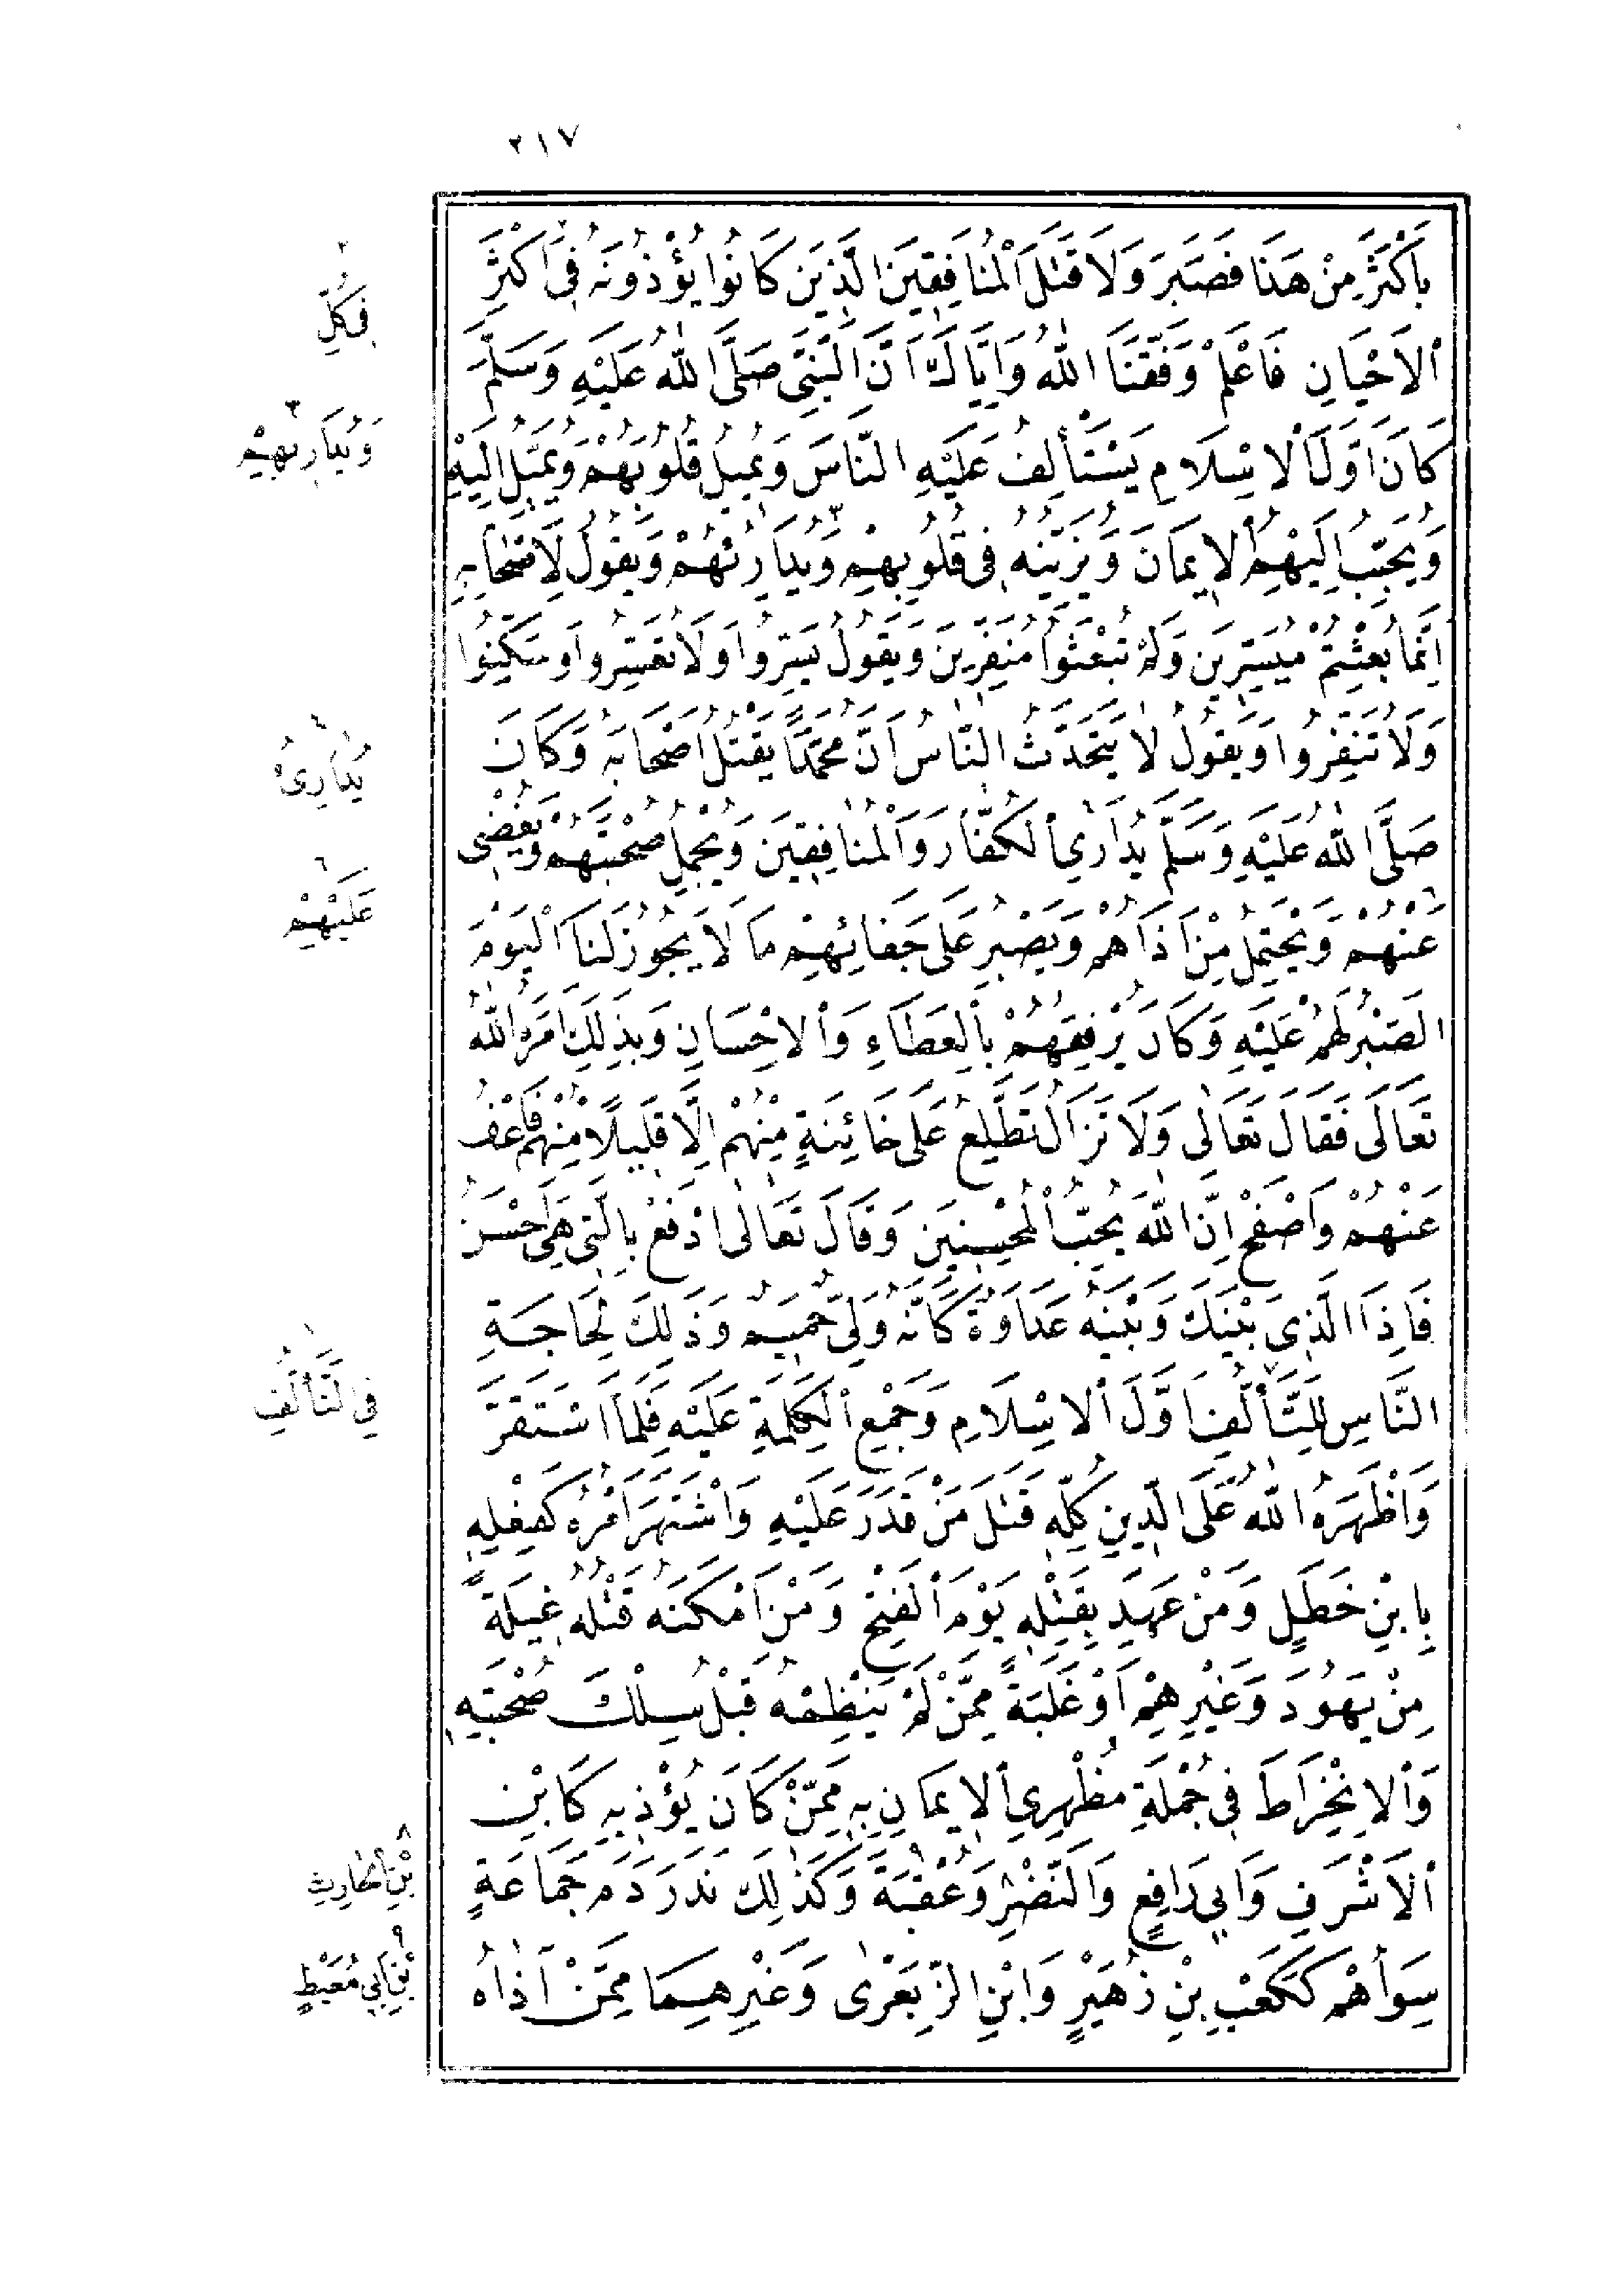 ٢١٧
بِأَكْثَرَ مِنْ هَذَا فَصَبَرَ وَلَا قَتَلَ الْمُنَافِقِينَ الَّذِينَ كَانُوا يُؤْذُونَهُ فِي أَكْثَرِ
الْأَحْيَانِ فَاعْلَمْ وَفَّقَنَا اللهُ وَإِيَّاكَ أَنَّ النَّبِيَّ صَلَّى اللهُ عَلَيْهِ وَسَلَّمَ
كَانَ أَوَّلَ الْإِسْلَامِ يَسْتَأْلِفُ عَلَيْهِ النَّاسَ وَيُمِيلُ قُلُوبَهُمْ وَيُمِيلُ إِلَيْهِ
وَيُحَبِّبُ إِلَيْهِمُ الْإِيمَانَ وَيُزَيِّنُهُ فِي قُلُوبِهِمْ وَيُدَارِئُهُمْ وَيَقُولُ لِأَصْحَابِهِ
إِنَّمَا بُعِثْتُمْ مُيَسِّرِينَ وَلَمْ تُبْعَثُوا مُنَفِّرِينَ وَيَقُولُ يَسِّرُوا وَلَا تُعَسِّرُوا وَسَكِّنُوا
وَلَا تُنَفِّرُوا وَيَقُولُ لَا يَتَحَدَّثُ النَّاسُ أَنَّ مُحَمَّدًا يَقْتُلُ أَصْحَابَهُ وَكَانَ
صَلَّى اللهُ عَلَيْهِ وَسَلَّمَ يُدَارِي الْكُفَّارَ وَالْمُنَافِقِينَ وَيُجْمِلُ صُحْبَتَهُمْ وَيُغْضِي
عَنْهُمْ وَيَحْتَمِلُ مِنْ أَذَاهُمْ وَيَصْبِرُ عَلَى جَفَائِهِمْ مَا لَا يَجُوزُ لَنَا الْيَوْمَ
الصَّبْرُ لَهُمْ عَلَيْهِ وَكَانَ يُرْفِقُهُمْ بِالْعَطَاءِ وَالْإِحْسَانِ وَبِذَلِكَ أَمَرَهُ اللهُ
تَعَالَى فَقَالَ تَعَالَى وَلَا تَزَالُ تَطَّلِعُ عَلَى خَائِنَةٍ مِنْهُمْ إِلَّا قَلِيلًا مِنْهُمْ فَاعْفُ
عَنْهُمْ وَاصْفَحْ إِنَّ اللهَ يُحِبُّ الْمُحْسِنِينَ وَقَالَ تَعَالَى ادْفَعْ بِالَّتِي هِيَ أَحْسَنُ
فَإِذَا الَّذِي بَيْنَكَ وَبَيْنَهُ عَدَاوَةٌ كَأَنَّهُ وَلِيٌّ حَمِيمٌ وَذَلِكَ لِحَاجَةِ
النَّاسِ لِلتَّأَلُّفِ أَوَّلَ الْإِسْلَامِ وَجَمْعِ الْكَلِمَةِ عَلَيْهِ فَلَمَّا اسْتَقَرَّ
وَأَظْهَرَهُ اللهُ عَلَى الدِّينِ كُلِّهِ قَتَلَ مَنْ قَدَرَ عَلَيْهِ وَاشْتَهَرَ أَمْرُهُ كَفِعْلِهِ
بِابْنِ خَطَلٍ وَمَنْ عَهِدَ بِقَتْلِهِ يَوْمَ الْفَتْحِ وَمَنْ أَمْكَنَهُ قَتْلُهُ غِيلَةً
مِنْ يَهُودَ وَغَيْرِهِمْ أَوْ غَلَبَةً مِمَّنْ لَمْ يَنْظِمْهُ قَبْلُ سِلْكُ صُحْبَتِهِ
وَالْإِنْخِرَاطُ فِي جُمْلَةِ مُظْهِرِي الْإِيمَانِ بِهِ مِمَّنْ كَانَ يُؤْذِيهِ كَابْنِ
الْأَشْرَفِ وَأَبِي رَافِعٍ وَالنَّضْرِ وَعُقْبَةَ وَكَذَلِكَ نَدَرَ دَمَ جَمَاعَةٍ
سِوَاهُمْ كَكَعْبِ بْنِ زُهَيْرٍ وَابْنِ الزِّبَعْرَى وَغَيْرِهِمَا مِمَّنْ آذَاهُ
٢
فِي كُلِّ
٣
وَيُدَارِيهِمْ
يُدَارِئُ
٦
عَلَيْهِمْ
فِي التَّأَلُّفِ
٨
بْنِ الْحَارِثِ
٩
بْنِ أَبِي مُعَيْطٍ